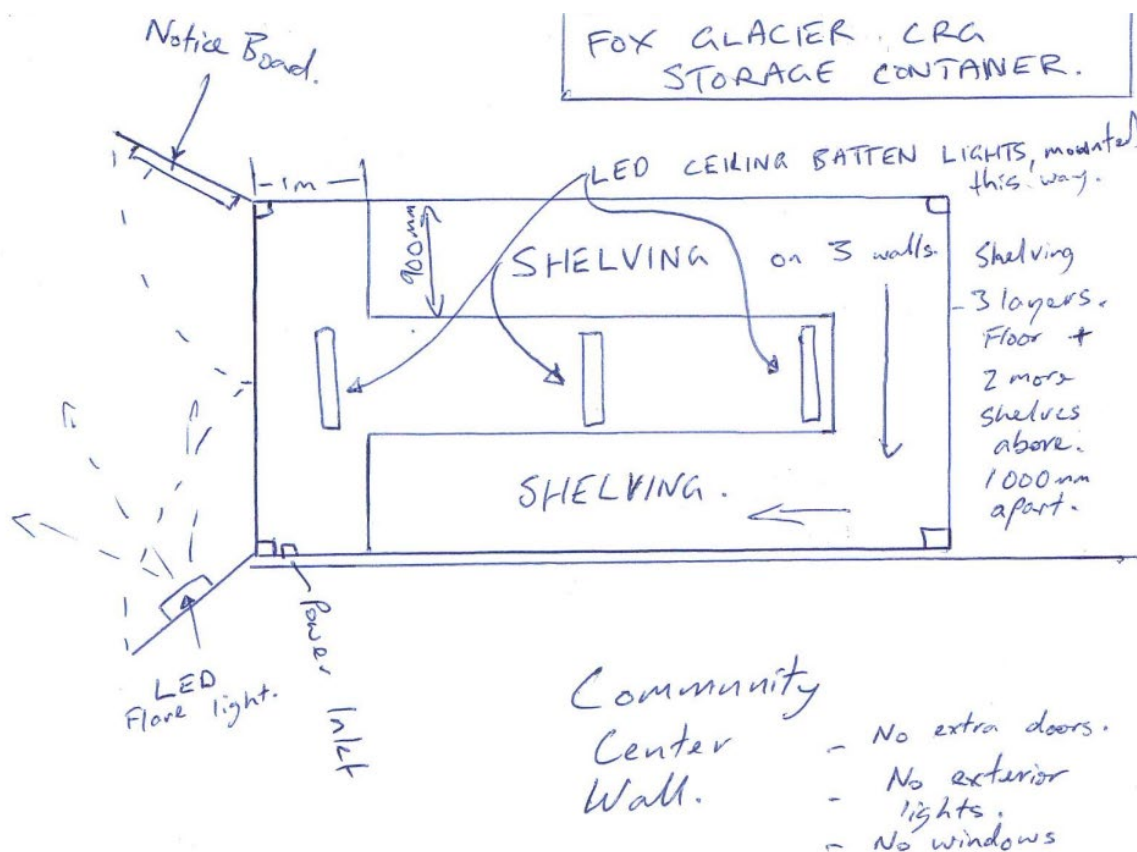 FOX GLACIER CRG
STORAGE CONTAINER.
Notice
Board.
LED CEILING BATTEN LIGHTS, mounted
this way.
1m
900mm
SHELVING on 3 walls.
Shelving
- 3 layers.
Floor +
2 more
shelves
above.
1000mm
apart.
SHELVING.
Power Inlet
LED
Flare light.
Community
Center
Wall.
- No extra doors.
- No exterior
lights.
- No windows